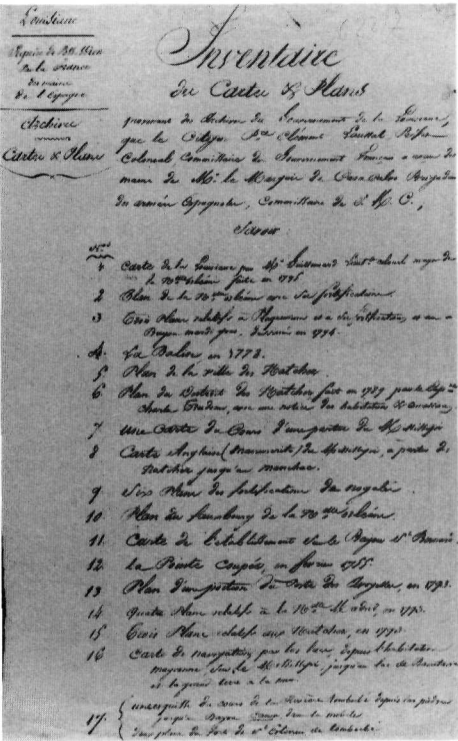 Louisiane
de la France
de l'Espagne
Archives
Cartes & Plans
Inventaire
des Cartes & Plans
provenant des Archives du Gouvernement de la Louisiane,
que le Citoyen Clément Laussat Préfet
Colonial Commissaire du Gouvernement français a reçues des
mains de Mr. le Marquis de Casa Calvo Brigadier
des armées Espagnoles, Commissaire de S. M. C.,
Savoir
Nos
1 Carte de la Louisiane par Mr Guillemard
la Nlle Orléans faite en
2 Plan de la Nlle Orléans avec ses fortifications.
3 Trois Plans relatifs à Plaquemines et à ses fortifications, et au
Bayou mardi gras,
4. La Balise en 1773.
5 Plan de la ville des Natchez.
6 Plan du District des Natchez fait en 1789 par
Charles Trudeau, avec une notice des habitations
7 Une Carte du Cours d'une partie du Mississipi
8 Carte Anglaise (Manuscrite) du Mississipi, à partir des
Natchez jusqu'à manchac.
9 Six Plans des fortifications de nogales.
10 Plan du faubourg de la Nlle Orléans.
11 Carte de l'établissement sur le Bayou St Bernard.
12 La Pointe coupée, en février
13 Plan d'une portion du Poste des Avoyelles, en 1793.
14 Quatre Plans relatifs à la Nlle Madrid en 1793.
15 Trois Plans relatifs aux Natchez, en 1793
16 Carte de navigation par les lacs, depuis l'habitation
sur le Mississipi, jusqu'au lac de Barataria
et la grande terre à la mer.
17. une esquisse du cours de la Rivière Tombecbé depuis
jusqu'au Bayou dans la mobile
deux plans du fort de